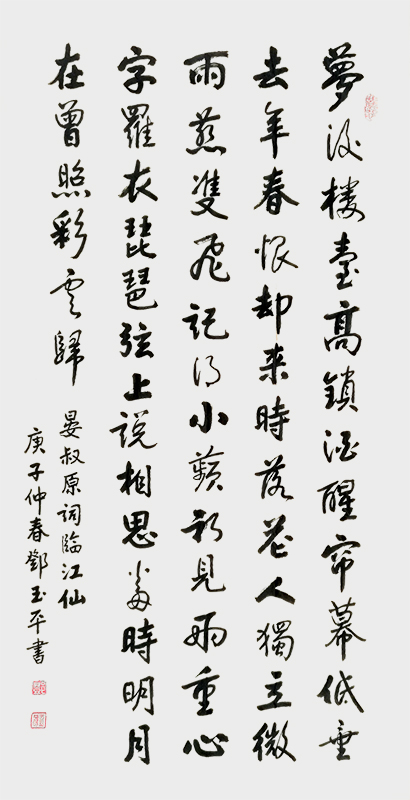 夢後楼臺高鎖酒醒帘幕低垂
去年春恨却来時落花人獨立微
雨燕雙飛記得小蘋初見兩重心
字羅衣琵琶弦上説相思當時明月
在曾照彩雲歸
晏叔原词臨江仙
庚子仲春鄧玉平書